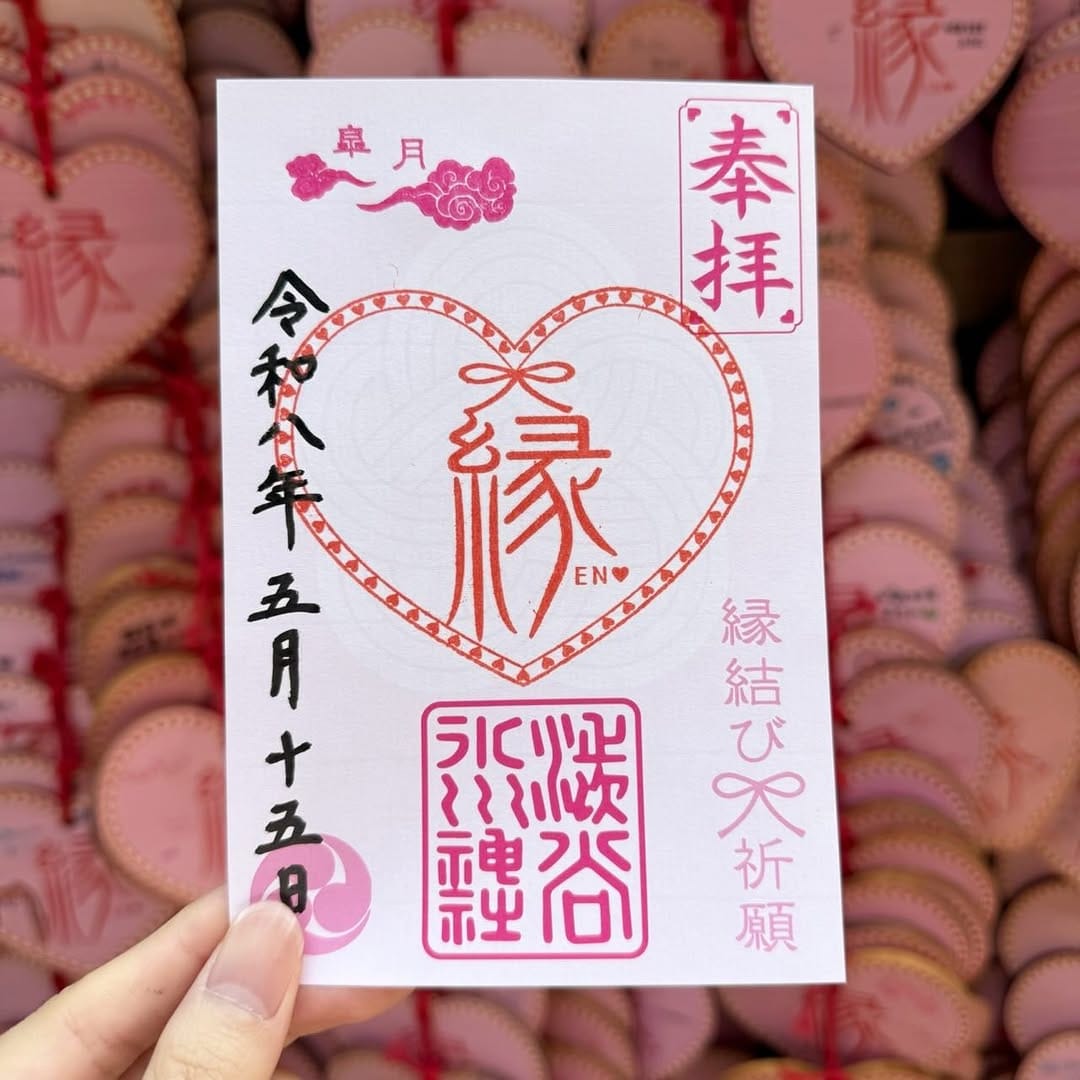 奉拝
縁結び
祈願
皐月
縁
EN♥
渋谷
氷川
神社
令和八年 五月十五日
縁
縁